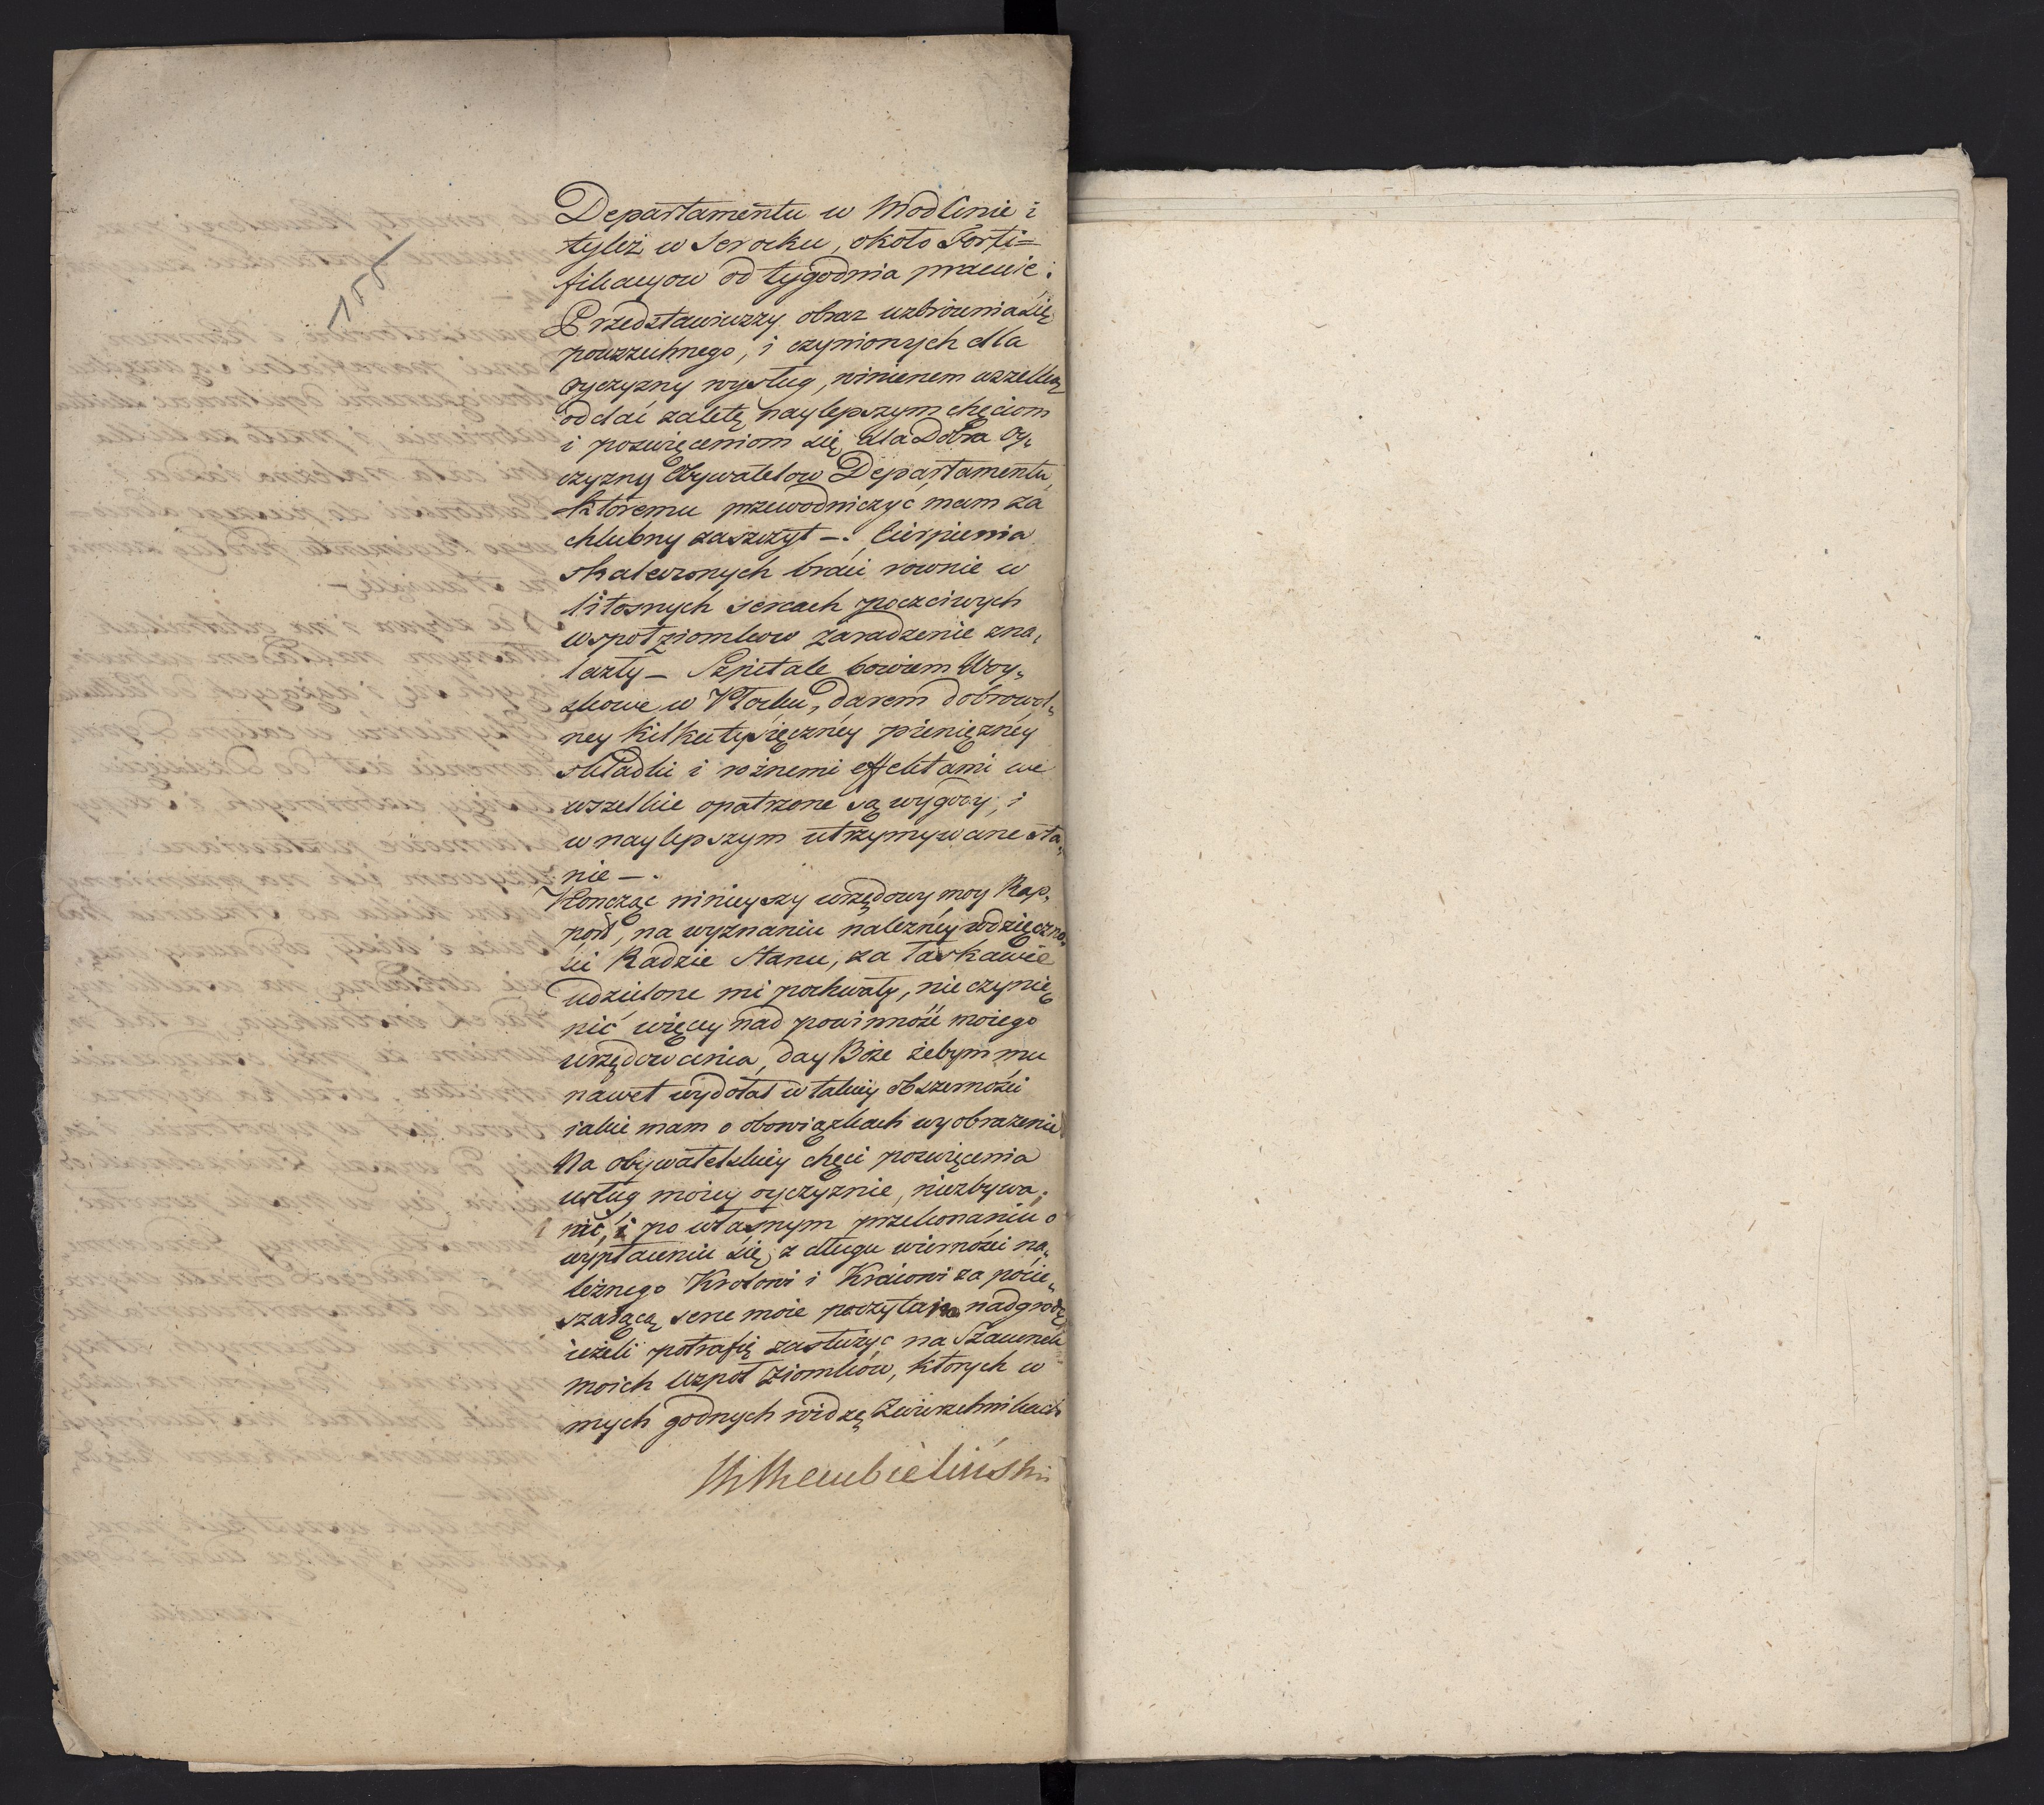 155
Departamentu w Modlinie i
tyleż w Serocku, około Forti=
fikacyow od tygodnia pracuie:
Przedstawiwszy obraz uzbroienia się
powszechnego, i czynionych dla
oyczyzny wysług, winienem wszelką
oddać zaletę naylepszym chęciom
i poswięceniom się dla Dobra Oy„
czyzny Obywatelow Departamentu,
ktoremu przewodniczyć mam za
chlubny zaszczyt —. Cierpienia
skaleczonych braci rownie w
litosnych sercach poczciwych
wspołziomkow zaradzenie zna„
lazły — Szpitale bowiem Woy„
skowe w Płocku, darem dobrowol„
ney kilkutysięczney pienięzney
składki i rożnemi effektami we
wszelkie opatrzone są wygody, i
w naylepszym utrzymywane sta„
nie —.
Kończąc ninieyszy urzędowy moy Rap„
port, na wyznaniu należney wdzięczno„
ści Radzie Stanu, za łaskawie
udzielone mi pochwały, nie czynię
nić więcey nad powinność moiego
urzędowania, day Boże żebym mu
nawet wydołał w takiey obszerności
iakie mam o obowiązkach wyobrażenie
Na obywatelskiey chęci poswięcenia
usług moiey oyczyznie, niezbywa
mi, i po własnym przekonaniu o
wypłaceniu się z długu wierności na„
leżnego Krolowi i Kraiowi za pocie„
szaiącą serce moie poczytam nadgrodę
ieżeli potrafię zasłużyć na Szacunek
moich Wspoł Ziomków, ktorych w
mych godnych widzę Zwierzchnikach